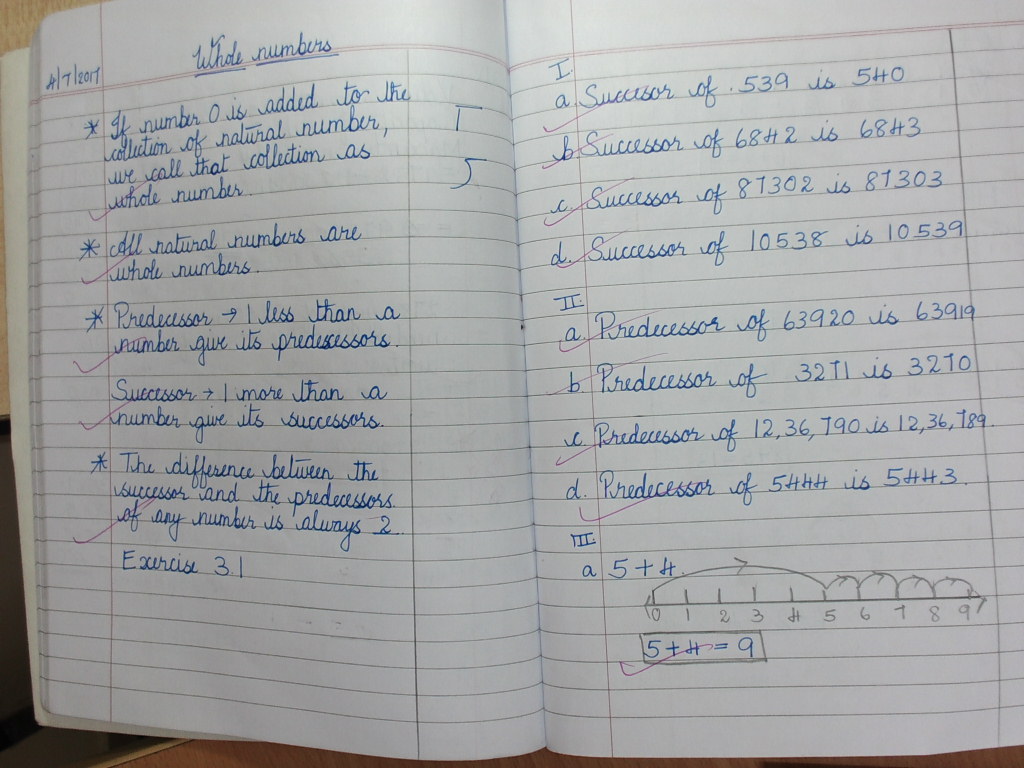 Whole numbers
4/7/2017
* If number 0 is added to the
collection of natural number,
we call that collection as
whole number.
* All natural numbers are
whole numbers.
* Predecessor → 1 less than a
number give its predescessors.
Successor → 1 more than a
number give its successors.
* The difference between the
successor and the predecessors.
of any number is always 2.
Exercise 3.1
I
a. Succesor of 539 is 540
b. Successor of 6842 is 6843
c. Successor of 87302 is 87303
d. Successor of 10538 is 10539
II
a. Predecessor of 63920 is 63919
b. Predecessor of 3271 is 3270
c. Predecessor of 12,36,790 is 12,36,789.
d. Predecessor of 5444 is 5443.
III
a 5+4.
0 1 2 3 4 5 6 7 8 9
5+4=9